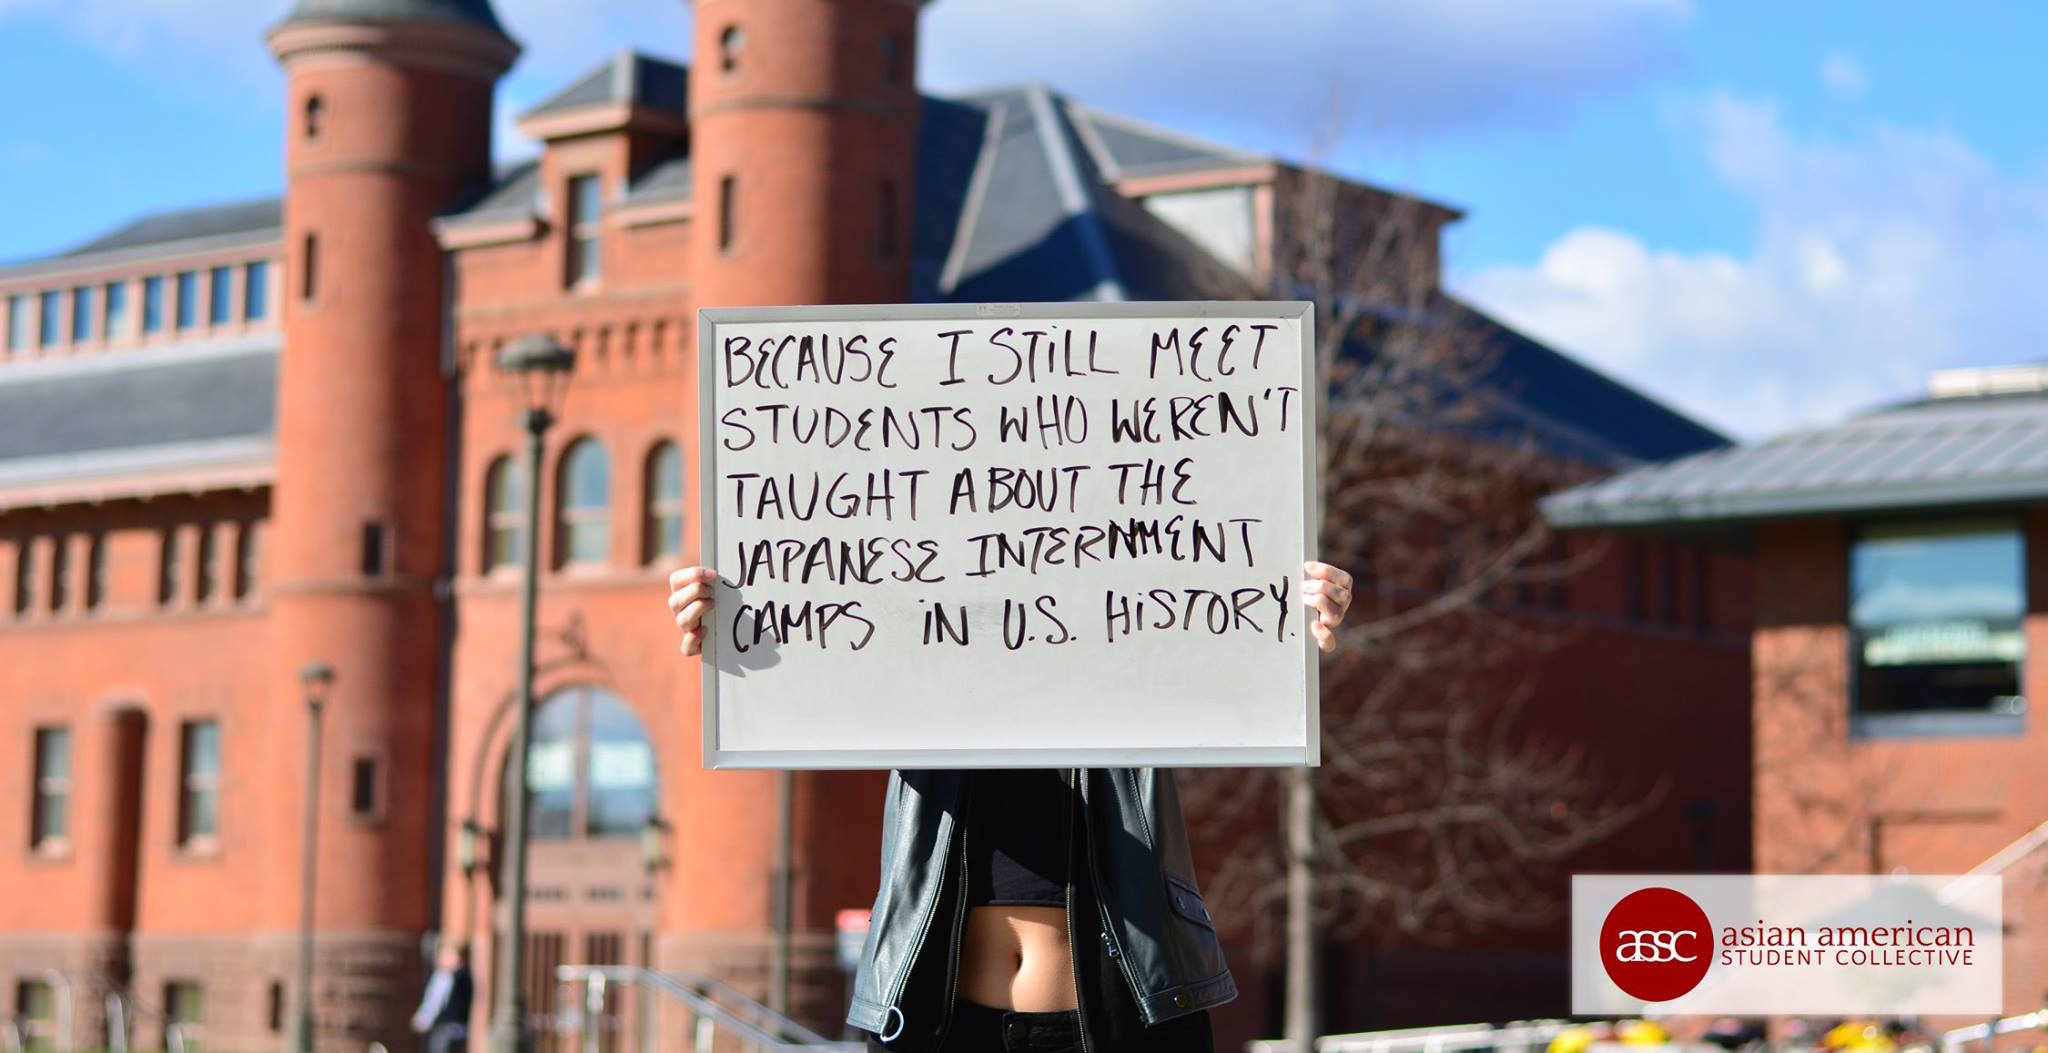 BECAUSE I STILL MEET
STUDENTS WHO WEREN'T
TAUGHT ABOUT THE
JAPANESE INTERNMENT
CAMPS IN U.S. HISTORY.
assc
asian american
STUDENT COLLECTIVE